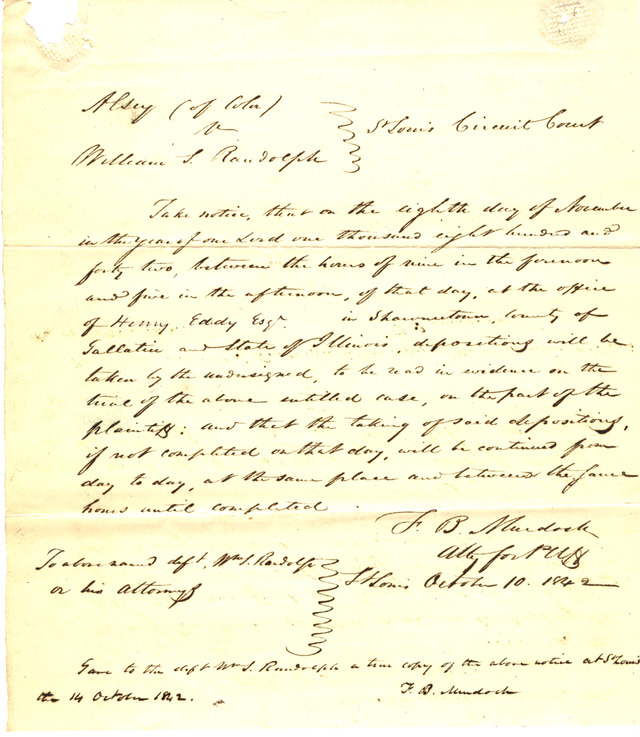 Alsey (of Color)
v
William S. Randolph
St Louis Circuit Court
Take notice, that on the eighth day of November
in the year of our Lord one thousand eight hundred and
forty two, between the hours of nine in the forenoon
and five in the afternoon, of that day, at the office
of Henry Eddy Esqr. in Shawneetown, County of
Gallatin and State of Illinois, depositions will be
taken by the undersigned, to be read in evidence on the
trial of the above entitled case, on the part of the
plaintiff: and that the taking of said depositions,
if not completed on that day, will be continued from
day to day, at the same place and between the same
hours until completed.
F. B. Murdock
Atty for Pltff
To above named deft. Wm S. Randolph
or his Attorney
St Louis October 10. 1842
Gave to the deft Wm S. Randolph a true copy of the above notice at St Louis
the 14 October 1842.
F. B. Murdock